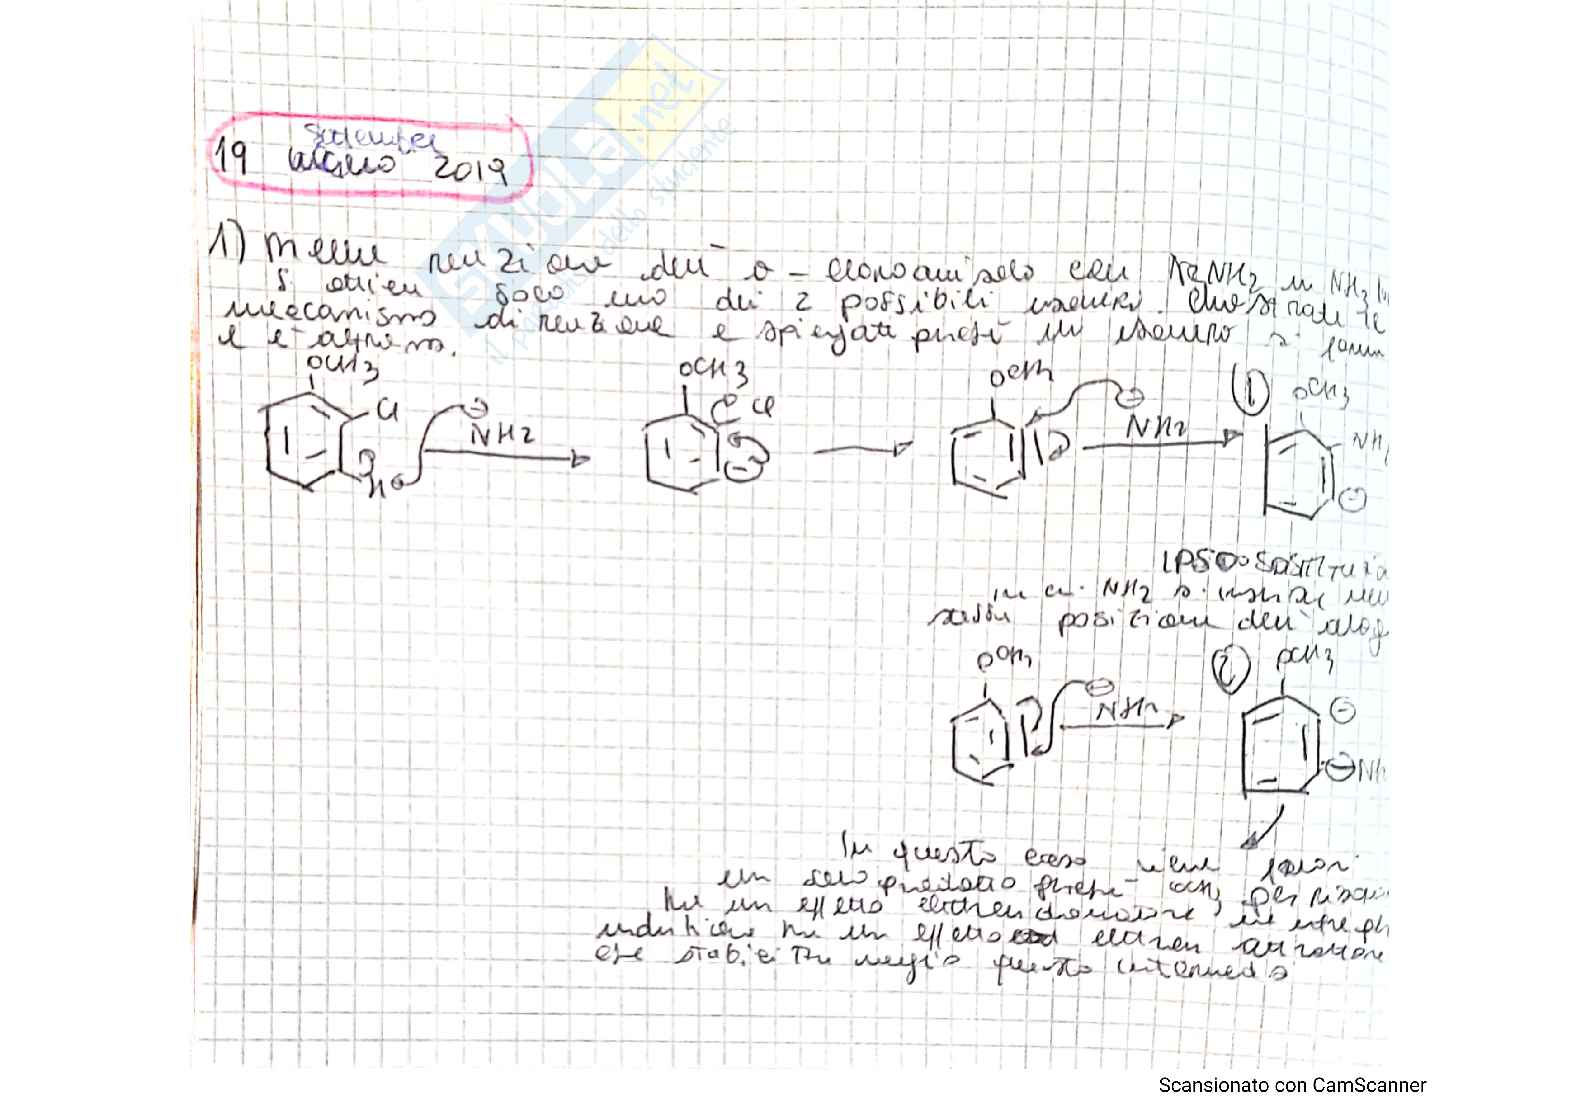 Settembre
19 luglio 2019
1) Nella reazione dell' o-cloroanisolo con NaNH2 in NH3
si ottien solo uno dei 2 possibili isomeri. Mostrate il
meccanismo di reazione e spiegate perché un isomero si
e l'altro no.
OCH3
Cl
H
⊖
NH2
OCH3
Cl
⊖
OCH3
⊖
NH2
①
OCH3
NH
⊖
IPSO SOSTITUZ
in cui NH2 si
stessa posizione dell'alog
OCH3
⊖
NH2
②
OCH3
⊖
⊖ NH
In questo caso viene
un solo prodotto perché OCH3 per
ha un effetto elettron donatore,
induttivo ha un effetto elettron attrattore
che stabilizza meglio questo intermedio
SKUOLA.net
dello studente
Scansionato con CamScanner